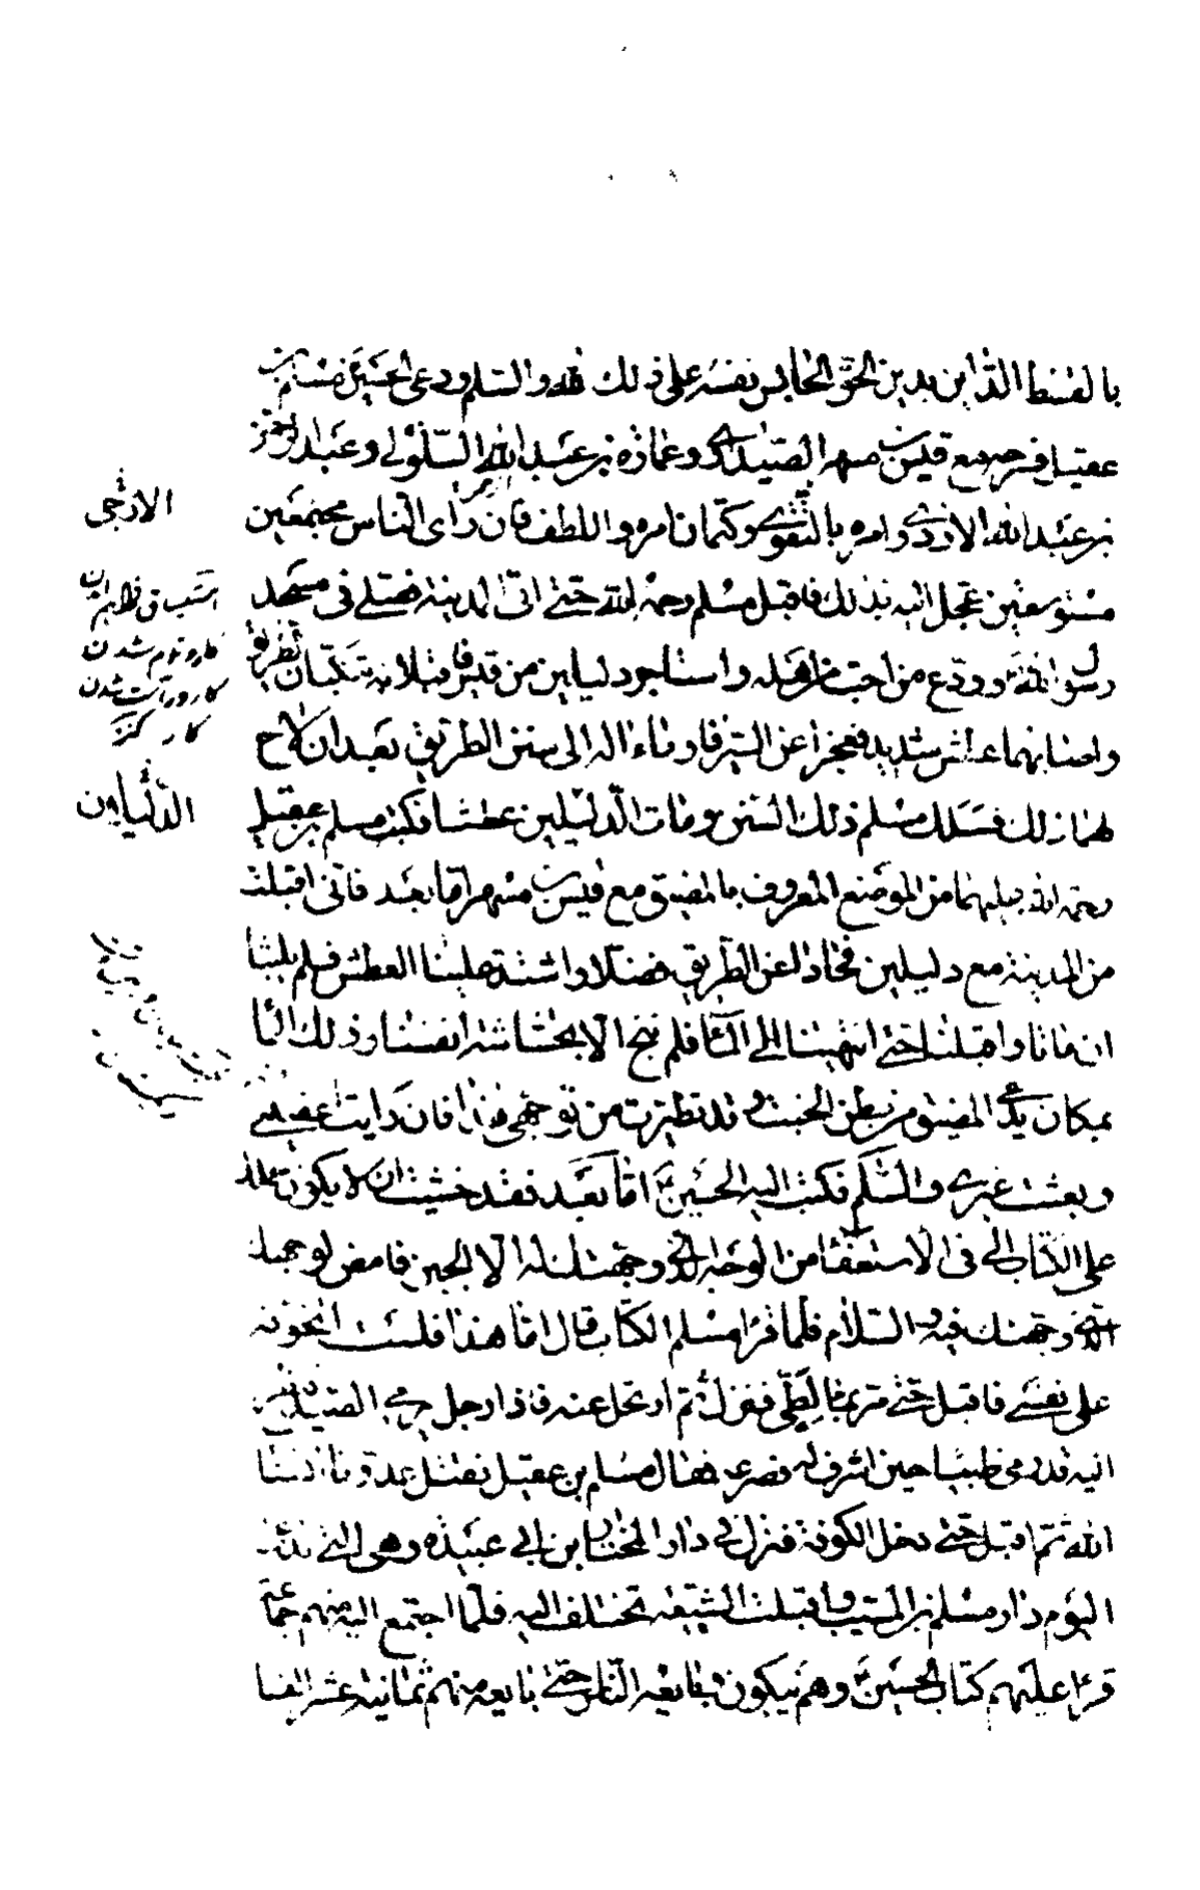 بالقسط الداين بدين الحق الحابس نفسه على ذلك لله والسلم ودعى الحسين مسلم بن
عقيل فسرحه مع قيس بن مسهر الصيداوي وعمارة بن عبد الله السلولي وعبد الرحمن
بن عبد الله الازدي وامره بالتقوى وكتمان امره واللطف فان راى الناس مجتمعين
مستوسقين عجل اليه بذلك فاقبل مسلم رحمه الله حتى اتى المدينة فصلى في مسجد
رسول الله وودع من احب من اهله واستاجر دليلين من قيس فاقبلا به يتنكبان الطريق
واصابهما عطش شديد فعجزا عن السير فاومئا له الى سنن الطريق بعد ان لاح
لهما ذلك فسلك مسلم ذلك السنن ومات الدليلين عطشا فكتب مسلم بن عقيل
رحمه الله من الموضع المعروف بالمضيق مع قيس بن مسهر اما بعد فانى اقبلت
من المدينة مع دليلين فحادا عن الطريق فضلا واشتد علينا العطش فلم يلبثا
ان ماتا واقبلنا حتى انتهينا الى الماء فلم ننج الا بحشاشة انفسنا وذلك الماء
بمكان يدعى المضيق من بطن الخبت وقد تطيرت من توجهى هذا فان رايت اعفيتني
وبعثت غيري والسلم فكتب اليه الحسين اما بعد فقد خشيت ان لا يكون حملك
على الكتاب الى في الاستعفاء من الوجه الذي وجهتك له الا الجبن فامض لوجهك
الذي وجهتك فيه والسلام فلما قرا مسلم الكتاب قال اما هذا فلست اتخوفه
على نفسي فاقبل حتى مر بماء لطي فنزل ثم ارتحل عنه فاذا رجل يرمي الصيد فنظر
اليه قد رمى ظبيا حين اشرف له فصرعه فقال مسلم بن عقيل نقتل عدونا انشا
الله ثم اقبل حتى دخل الكوفة فنزل في دار المختار بن ابي عبيدة وهي التي تدعى
اليوم دار مسلم بن المسيب واقبلت الشيعة تختلف اليه فلما اجتمع اليه منهم جماعة
قرا عليهم كتاب الحسين وهم يبكون وبايعه الناس حتى بايعه منهم ثمانية عشر الفا
الارحبي
شدن
شدن
كار
الدليلان